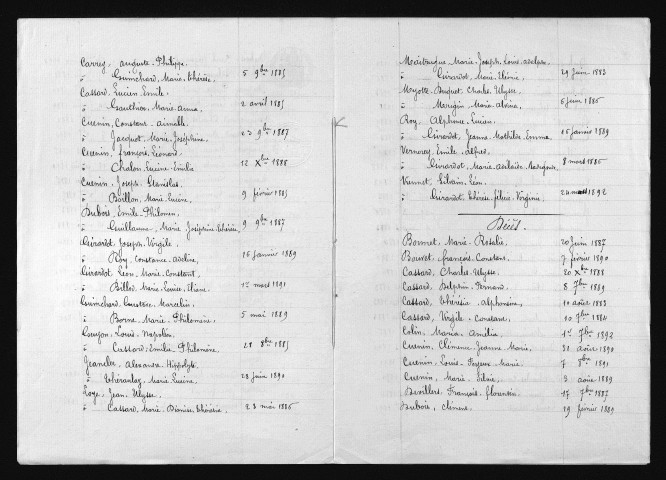 Carrey, Auguste, Philippe.
" Guinchard, Marie, Thérèse. 5 9bre 1885
Cassard, Lucien, Emile.
" Gauthier, Marie, Anna. 2 avril 1885
Cuenin, Constant, Aimable.
" Jacquot, Marie, Joséphine. 23 9bre 1887
Cuenin, François, Léonard.
" Chalon, Lucine, Emilie 12 Xbre 1888
Cuenin, Joseph, Stanislas.
" Barllon, Marie, Lucine, 9 février 1885
Dubois, Emile, Philomen.
" Guillaume, Marie Joséphine 9 9bre 1887
Girardot Joseph, Virgile.
" Roy, Constance, Adeline, 16 janvier 1889
Girardot Léon, Marie, Constant,
" Billod, Marie, Louise, 1er mars 1891
Guinchard, Constant Marcelin.
" Borne, Marie, Philomène. 5 mai 1889
Louis, Napoléon,
" Cassard, Emilie, Philomène. 28 8bre 1885
Alexandre, Hippolyte
" Marie, Lucine. 28 juin 1890
Loye, Jean, Ulysse.
" Cassard, Marie, 23 mai 1886
Marie, Joseph, Louis, Adolphe
" Girardot, Marie 29 juin 1883
Charles, Ulysse.
" Mougin, Marie, 6 juin 1885
Roy, Alphonse, Lucien.
" Girardot, Jeanne, Mathilde, Emma 15 janvier 1889
Vernerey, Emile, Alfred.
" Girardot, Marie, Adélaïde 8 mars 1886
Silvain, Léon.
" Girardot, Thérèse, Virginie 24 mars 1892
Décès.
Bonnet, Marie, Rosalie, 20 juin 1887
Bouvet, François, Constant, 7 février 1890
Cassard, Charles, Ulysse. 20 Xbre 1888
Cassard, Delphin, Fernand. 8 7bre 1889
Cassard, Alphonsine, 10 août 1883
Cassard, Virgile, Constant, 10 7bre 1884
Colin, Maria, Amélia. 1er 7bre 1892
Cuenin, Clémence, Jeanne, Marie. 31 août 1890
Cuenin, Louis, Marie, 7 1891
Cuenin, Marie, 3 août 1889
Devillers, François, Florentin. 17 7bre 1887
Dubois, 19 février 1889